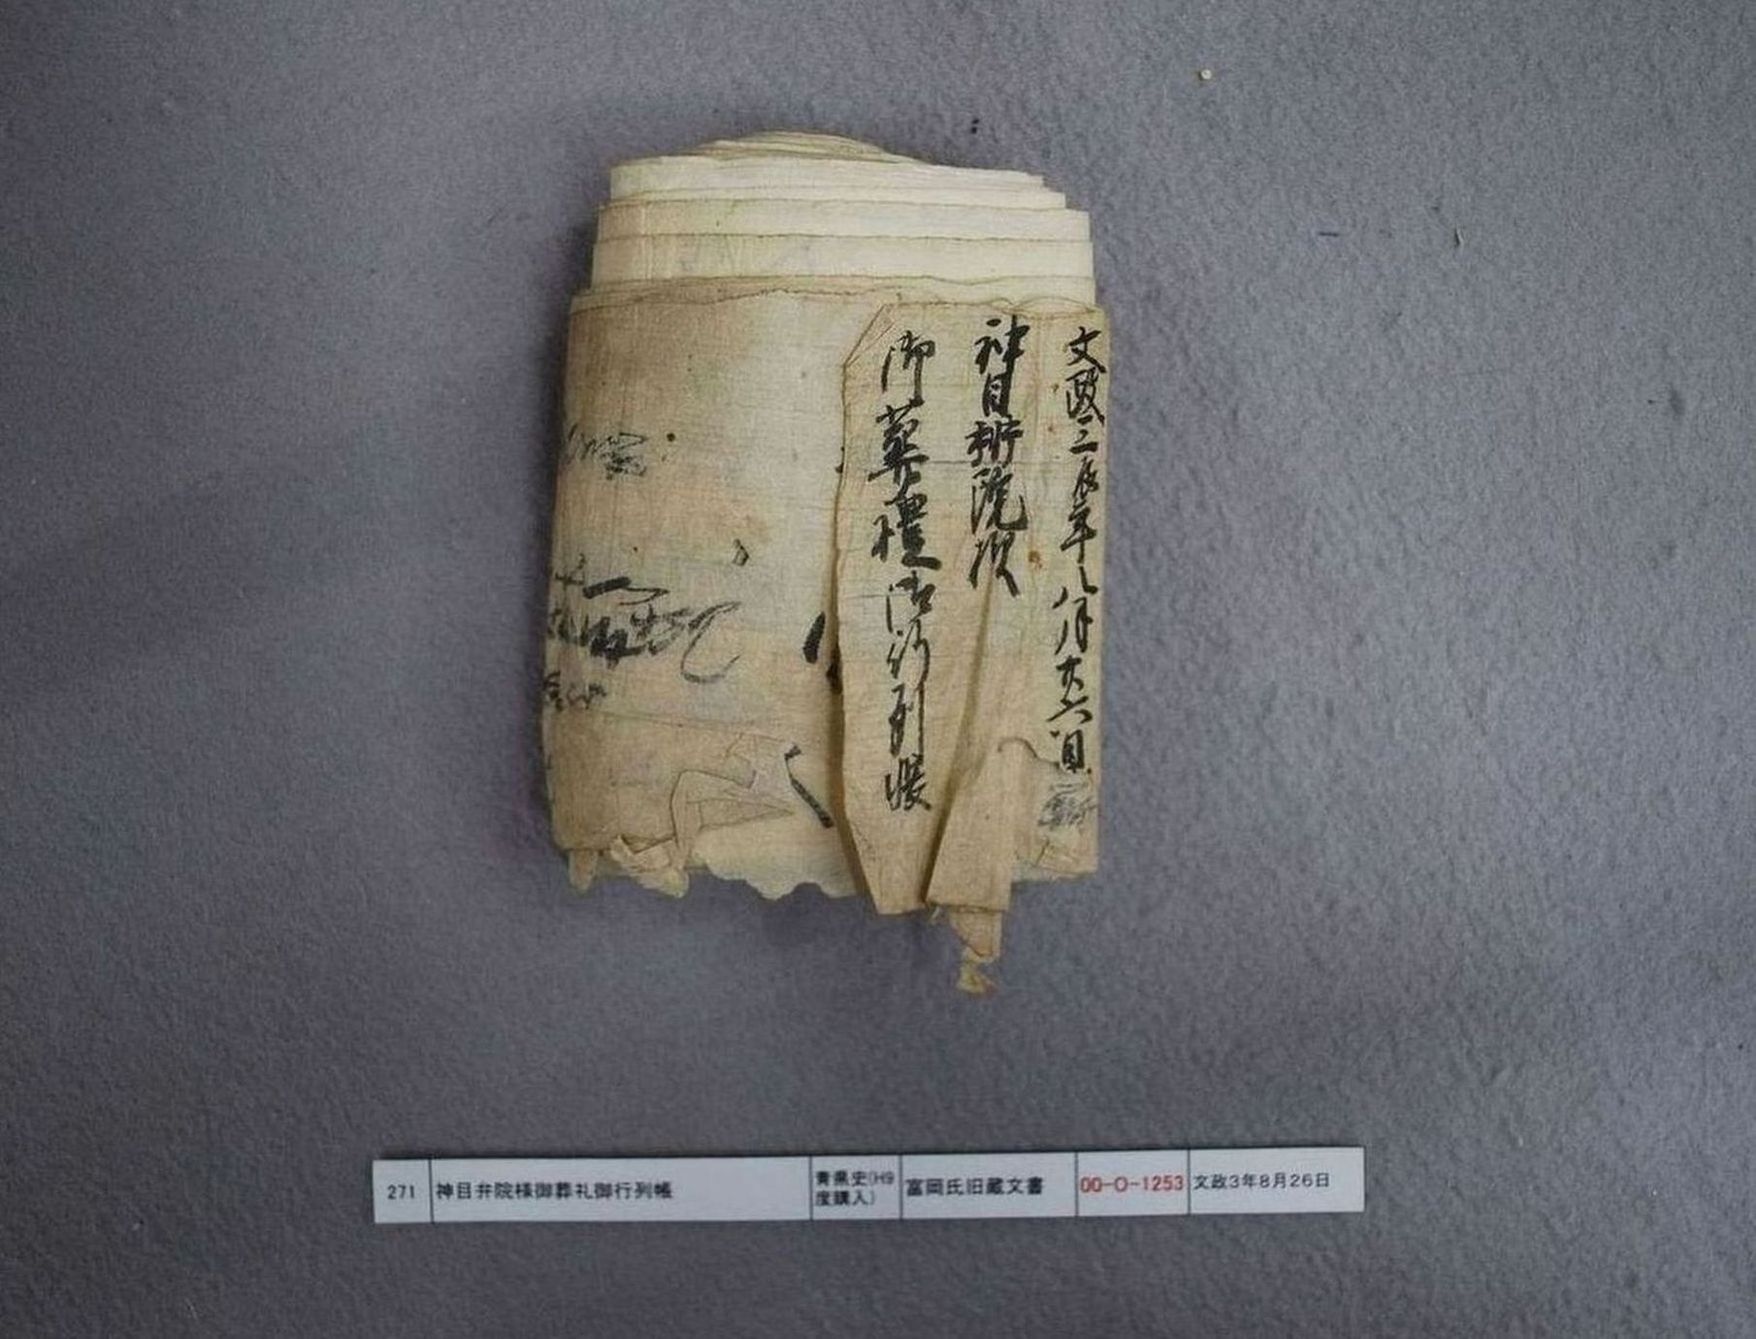 文政三辰年八月廿六日
神目辨院様
御葬禮御行列帳
271
神目弁院様御葬礼御行列帳
青県史(H9
度購入)
富岡氏旧蔵文書
00-O-1253
文政3年8月26日